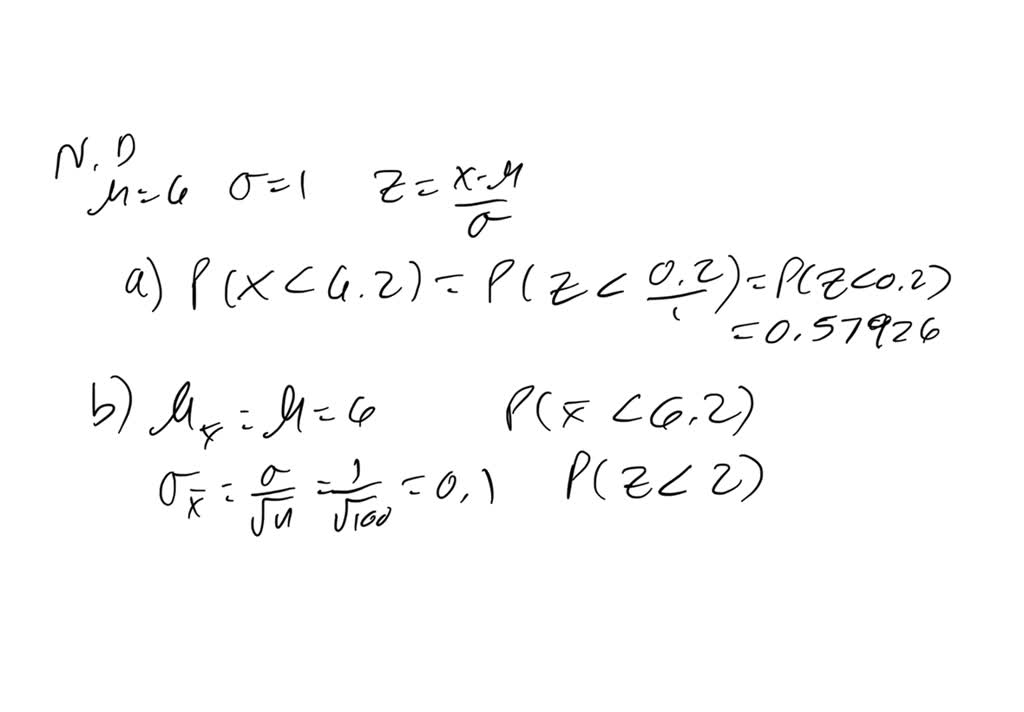 N.D
μ=6 σ=1 z=x-μ/σ
a) P(x<6.2)=P(z<0.2/1)=P(z<0.2)
=0.57926
b) μx̄=μ=6 P(x̄<6.2)
σx̄=σ/√n=1/√100=0.1 P(z<2)